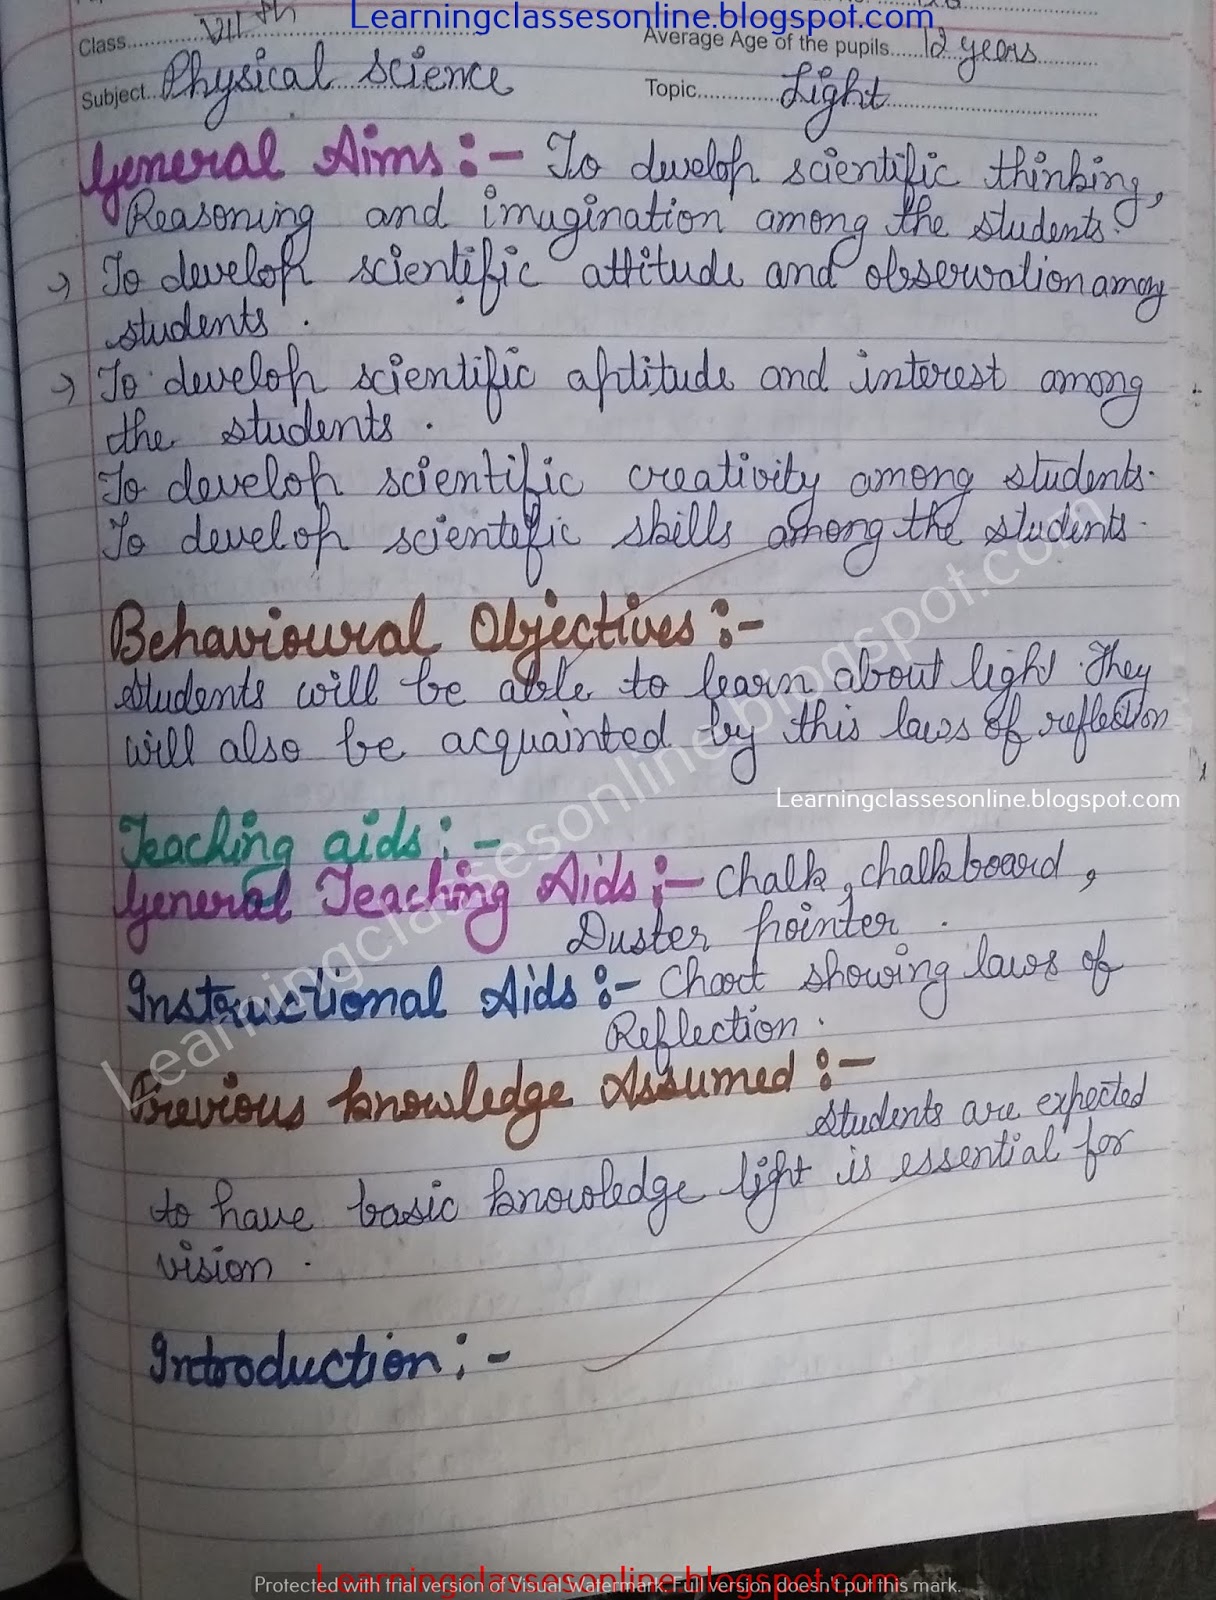 Learningclassesonline.blogspot.com
Class.......VIIth....... Average Age of the pupils.....12 years.......
Subject..Physical science Topic............Light............
General Aims :- To develop scientific thinking,
Reasoning and imugination among the students.
→ To develop scientific attitude and observation among
students.
→ To develop scientific aptitude and interest among
the students.
To develop scientific creativity among students.
To develop scientific skills among the students.
Behavioural Objectives :-
Students will be able to learn about light. They
will also be acquainted by this laws of reflection
Learningclassesonline.blogspot.com
Teaching aids :-
General Teaching Aids :- Chalk, chalkboard,
Duster pointer.
Instructional Aids :- Chart showing laws of
Reflection.
Previous knowledge Assumed :-
Students are expected
to have basic knowledge light is essential for
vision.
Introduction :-
Learningclassesonline.blogspot.com
Learningclassesonline.blogspot.com
Protected with trial version of Visual Watermark. Full version doesn't put this mark.